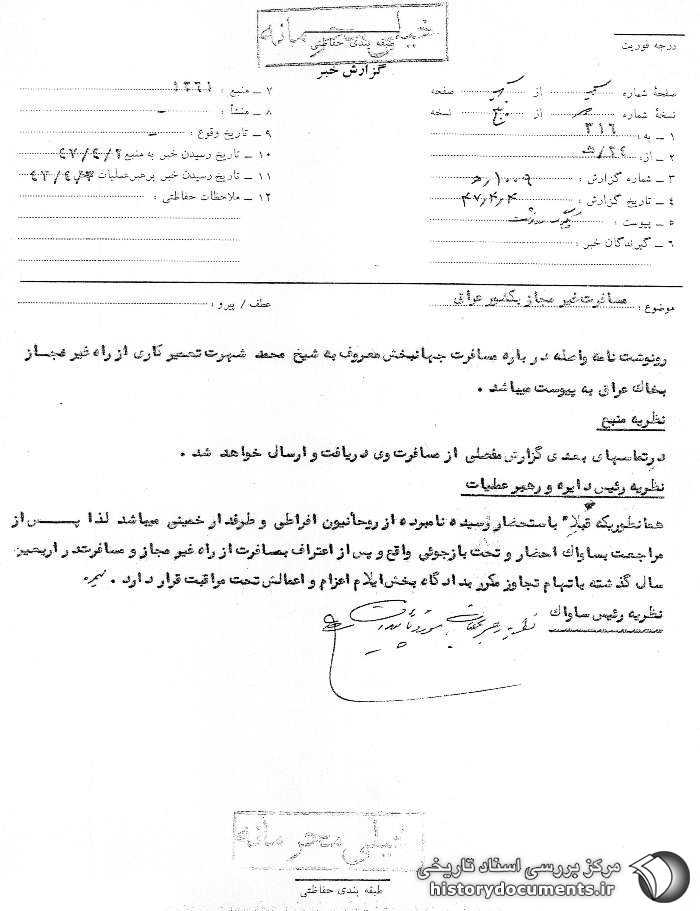 خیلی محرمانه
طبقه بندی حفاظتی
درجه فوریت
گزارش خبر
صفحهٔ شماره یک از یک صفحه
نسخهٔ شماره از پنج نسخه
۱ ـ به: ۳۱۶
۲ ـ از: ۲۴/ه
۳ ـ شماره گزارش: ۱۰۰۹/ه
۴ ـ تاریخ گزارش: ۴۷٫۴٫۴
۵ ـ پیوست: یکبرگ رونوشت
۶ ـ گیرندگان خبر:
۷ ـ منبع: ۱۳۶۱
۸ ـ منشأ: ـ
۹ ـ تاریخ وقوع: ـ
۱۰ ـ تاریخ رسیدن خبر به منبع ۴۷/۴/۲
۱۱ ـ تاریخ رسیدن خبر برهبر عملیات ۴۷/۴/۳
۱۲ ـ ملاحظات حفاظتی:
موضوع: مسافرت غیر مجاز بکشور عراق
عطف / پیرو:
رونوشت نامه واصله در باره مسافرت جهانبخش معروف به شیخ محمد شهرت تعمیرکاری از راه غیر مجاز
بخاک عراق به پیوست میباشد .
نظریه منبع
درتماسهای بعدی گزارش مفصلی از مسافرت وی دریافت و ارسال خواهد شد .
نظریه رئیس دایره و رهبر عملیات
همانطوریکه قبلاً باستحضار رسیده نامبرده از روحانیون افراطی و طرفدار خمینی میباشد لذا پس از
مراجعت بساواک احضار و تحت بازجوئی واقع و پس از اعتراف بمسافرت از راه غیر مجاز و مسافرت در اربعین
سال گذشته باتهام تجاوز مکرر بدادگاه بخش ایلام اعزام و اعمالش تحت مراقبت قرار دارد .
نظریه رئیس ساواک
نظریه رهبر عملیات مورد تائید است
خیلی محرمانه
طبقه بندی حفاظتی
مرکز بررسی اسناد تاریخی
historydocuments.ir